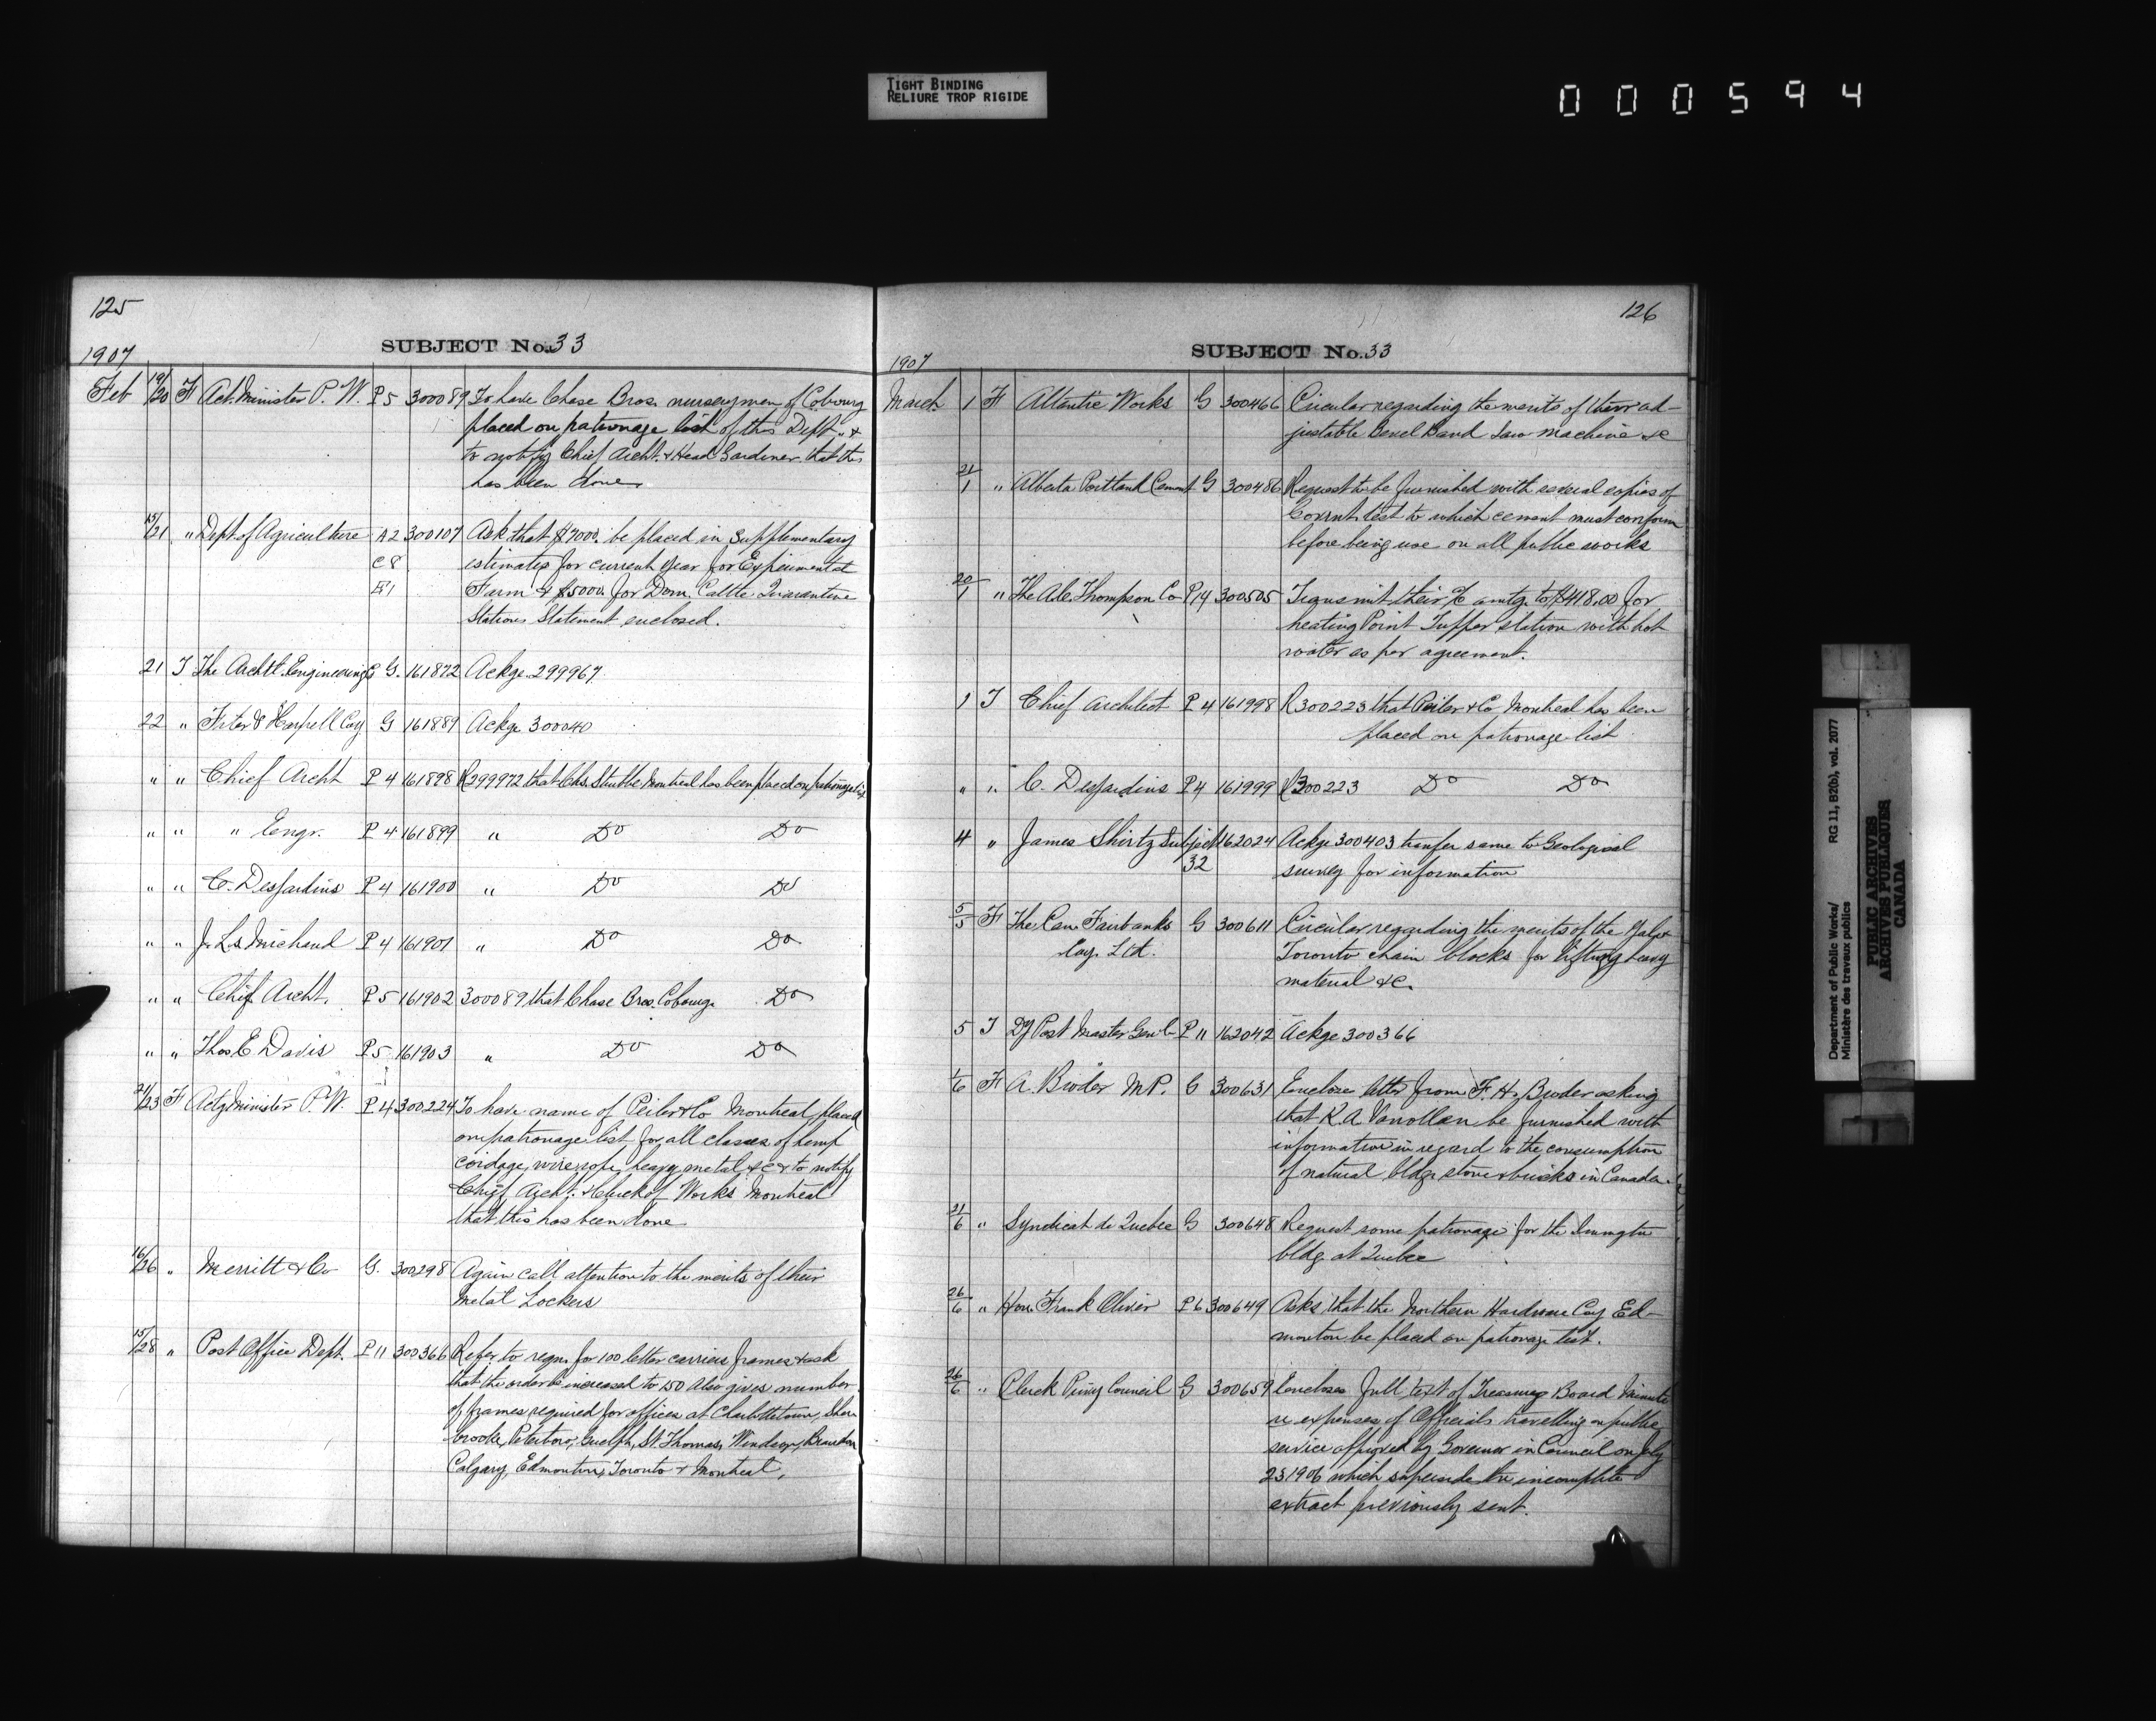 TIGHT BINDING
RELIURE TROP RIGIDE
000594
125
SUBJECT No. 33
1907
Feb 19/20 F Act. Minister P. W. P 5 300089 To have Chase Bros. nurserymen of Cobourg
placed on patronage list of this Dept. &
to notify Chief Archt. & Head Gardener that this
has been done
15/21 " Dept of Agriculture A2 300107 Ask that $7000. be placed in Supplementary
C8 estimates for current year for Experimental
E1 Farm & $5000. for Dom. Cattle Quarantine
Stations Statement enclosed.
21 T The Archt. Engineering G. 161872 Ackge 299967
22 " & Harpell Coy G 161889 Ackge 300040
" " Chief Archt P 4 161898 R 299972 that Chs. Montreal has been placed on patronage list
" " " Engr. P 4 161899 " Do Do
" " C. Desjardins P 4 161900 " Do Do
" " J. Ls. Michaud P 4 161901 " Do Do
" " Chief Archt. P 5 161902 300089 that Chase Bros. Cobourg Do
" " Thos E Davis P 5 161903 " Do Do
21/23 F Actg Minister P. W. P 4 300224 To have name of Peiler & Co Montreal placed
on patronage list for all classes of hemp
cordage, wire rope, heavy metal &c & to notify
Chief Archt. & Clerk of Works Montreal
that this has been done
16/26 " Merritt & Co G. 300298 Again call attention to the merits of their
Metal Lockers
15/28 " Post Office Dept. P 11 300366 Refer to reqn. for 100 letter carriers frames & ask
that the order be increased to 150 Also gives number
of frames required for offices at Charlottetown, Sher
brooke, Peterboro, Guelph, St. Thomas, Windsor, Brandon
Calgary, Edmonton, Toronto & Montreal.
126
SUBJECT No. 33
1907
March 1 F Atlantic Works G 300466 Circular regarding the merits of their ad-
justable Bevel Band Saw Machine &c
21/1 " Alberta Portland Cement G 300486 Request to be furnished with several copies of
Govmnt. test to which cement must conform
before being use on all public works
20/1 " The Thompson Co P 14 300505 Transmit their a/c amtg. to $418.00 for
heating Point Tupper station with hot
water as per agreement.
1 T Chief Architect P 4 161998 R 300223 that Peiler & Co Montreal has been
placed on patronage list
" " C. Desjardins P 4 161999 R 300223 Do Do
4 " James Shirtz Subject 162024 Ackge 300403 transfer same to Geological
32 survey for information
5/5 F The Can. Fairbanks G 300611 Circular regarding the merits of the Yale &
Coy. Ltd. Toronto chain blocks for lifting heavy
material &c.
5 T Dy Post Master Genl. P 11 162042 Ackge 300366
1/6 F A. Broder M.P. G 300631 Enclose letter from F. H. Broder asking
that K. A. be furnished with
information in regard to the consumption
of natural bldg. stone & bricks in Canada.
21/6 " Syndicat de Quebec G 300648 Request some patronage for the Immgtn
bldg. at Quebec
26/6 " Hon. Frank Oliver P 6 300649 Asks that the Northern Hardware Coy Ed-
monton be placed on patronage list.
26/6 " Clerk Privy Council G 300659 Encloses full text of Treasury Board Minute
re expenses of Officials travelling on public
service approved by Governor in Council on July
23 1906 which supersede the incomplete
extract previously sent.
Department of Public Works/ RG 11, B2(b), vol. 2077
Ministère des travaux publics
PUBLIC ARCHIVES
ARCHIVES PUBLIQUES
CANADA